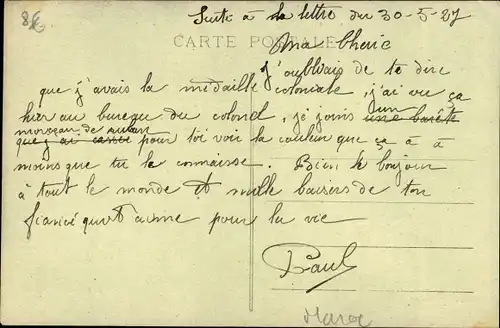 8€
Suite à la lettre du 30-5-27
CARTE POSTALE
Ma Cherie
J'oubliais de te dire
que j'avais la medaille coloniale, j'ai vu ça
hier au bureau du colonel, je joins un une barète
morceau de ruban
que j'ai pour toi voir la couleur que ça à à
moins que tu la connaisse. Bien le bonjour
à tout le monde et mille baisers de ton
fiancé qui t'aime pour la vie
Paul
Maroc